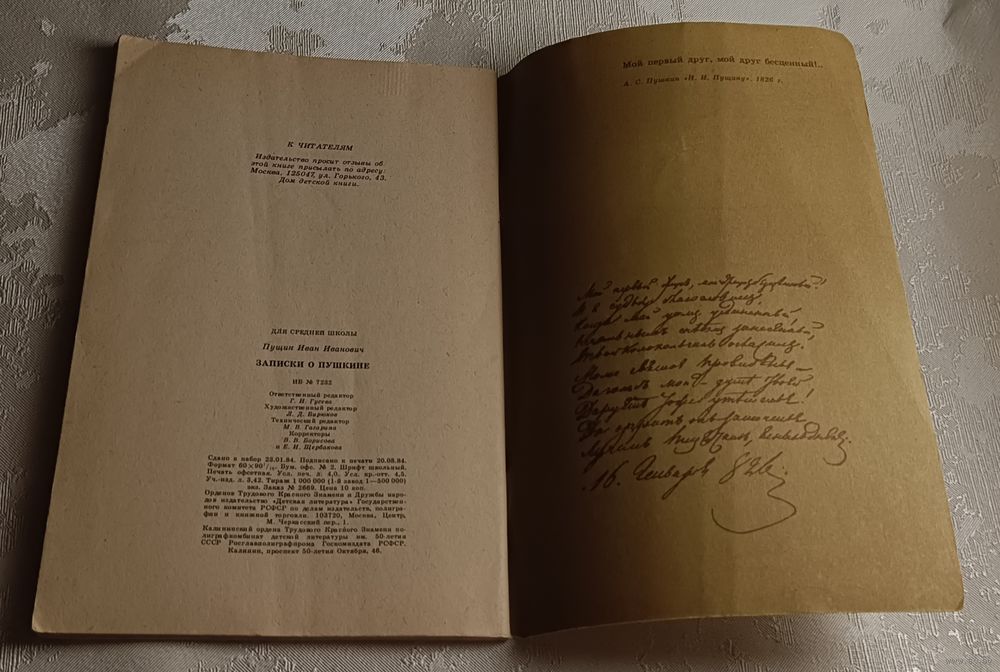 К ЧИТАТЕЛЯМ
Издательство просит отзывы об
этой книге присылать по адресу:
Москва, 125047, ул. Горького, 43.
Дом детской книги.
ДЛЯ СРЕДНЕЙ ШКОЛЫ
Пущин Иван Иванович
ЗАПИСКИ О ПУШКИНЕ
ИБ № 7232
Ответственный редактор
Г. И. Гусева
Художественный редактор
Л. Д. Бирюков
Технический редактор
М. В. Гагарина
Корректоры
В. В. Борисова
и Е. И. Щербакова
Сдано в набор 23.01.84. Подписано к печати 20.08.84.
Формат 60×90 1/16. Бум. офс. № 2. Шрифт школьный.
Печать офсетная. Усл. печ. л. 4,0. Усл. кр.-отт. 4,5.
Уч.-изд. л. 3,42. Тираж 1 000 000 (1-й завод 1—500 000)
экз. Заказ № 2669. Цена 10 коп.
Орденов Трудового Красного Знамени и Дружбы наро-
дов издательство «Детская литература» Государствен-
ного комитета РСФСР по делам издательств, полигра-
фии и книжной торговли. 103720, Москва, Центр,
М. Черкасский пер., 1.
Калининский ордена Трудового Красного Знамени по-
лиграфкомбинат детской литературы им. 50-летия
СССР Росглавполиграфпрома Госкомиздата РСФСР.
Калинин, проспект 50-летия Октября, 46.
Мой первый друг, мой друг бесценный!..
А. С. Пушкин «И. И. Пущину». 1826 г.
Мой первый друг, мой другъ бесценный!
И я судьбу благословилъ
Когда мой дворъ уединенный,
Твой колокольчикъ огласилъ.
Молю святое провиденье
Да голосъ мой душе твоей
Даруетъ тоже утешенье!
Да озаритъ онъ заточенье